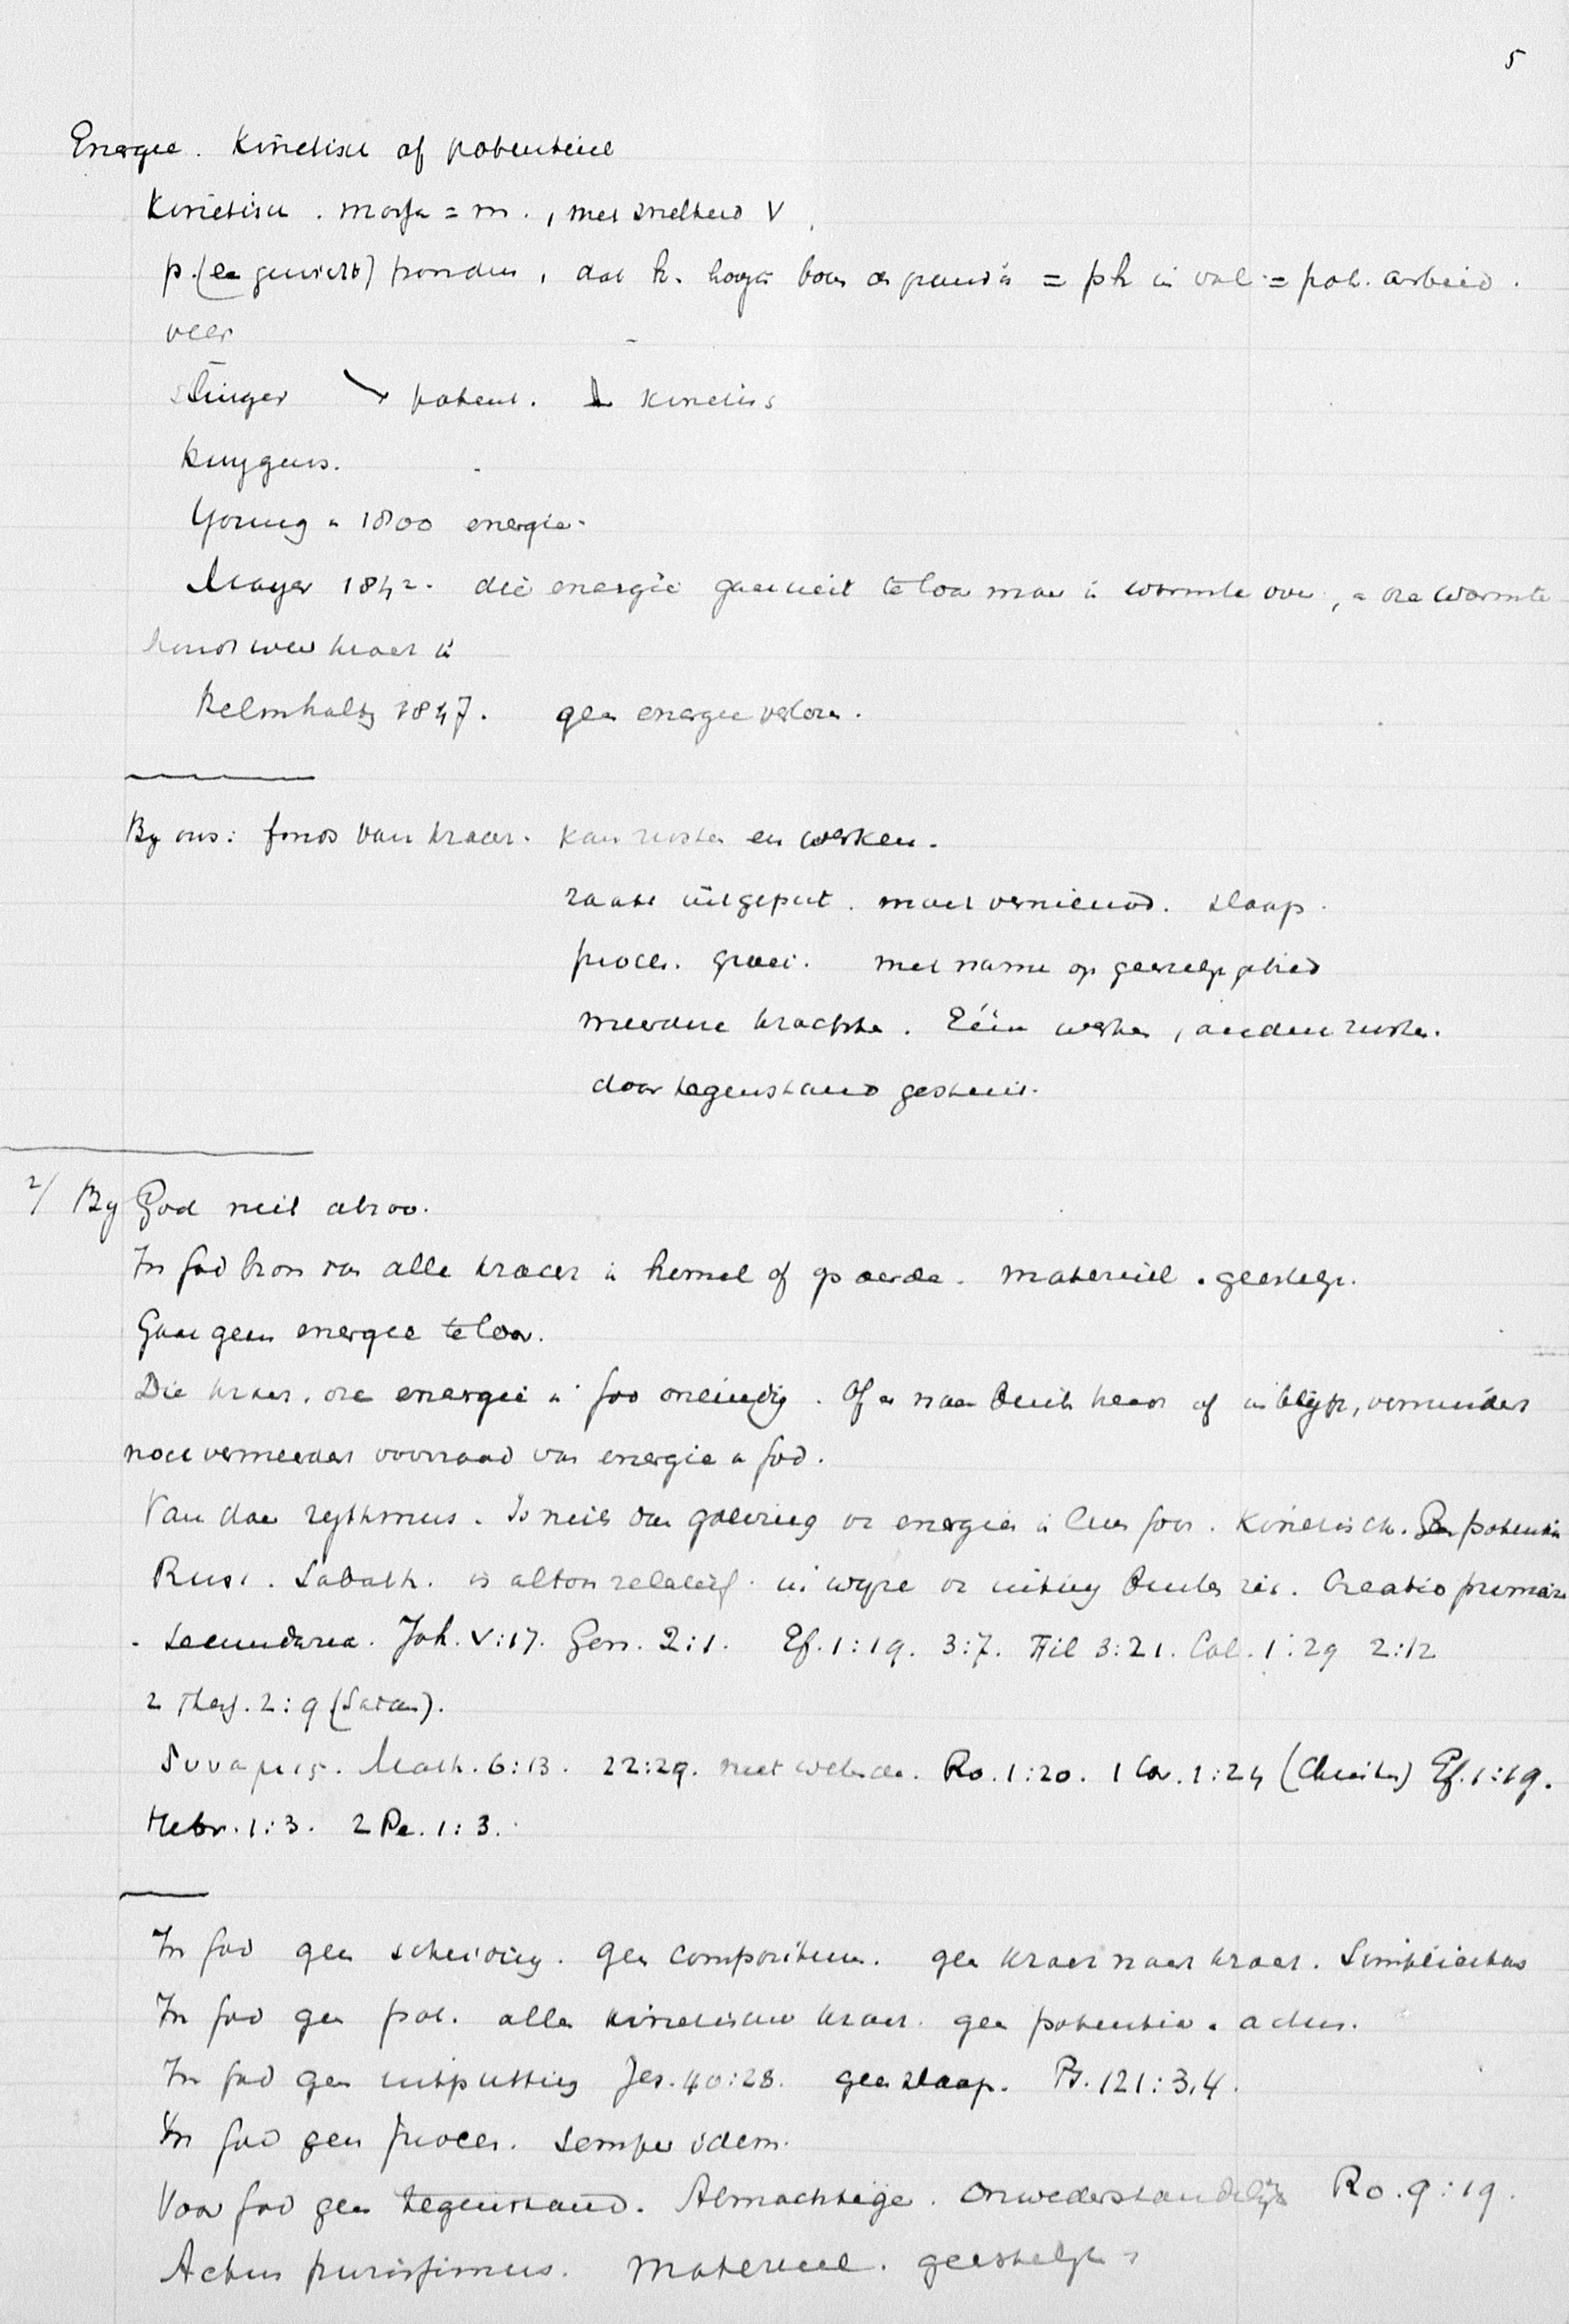 5
Energie. Kinetisch of potentieel
Kinetisch. massa = m., met snelheid V.
p. (een gewicht) pondus, dat h. hoog boven de grond is = ph in val = pot. arbeid.
veer
slinger ↘ potent. ↓ kinetis
Huygens.
Young in 1800 energie.
Mayer 1842. die energie gaat niet te loor maar in warmte over, en die warmte
weer kracht is
Helmholtz 1847. geen energie verloren.
By ons: fonds van kracht. kan rusten en werken.
raakt uitgeput. moet vernieuwd. slaap.
proces. groei. met name op geestelijk gebied
meerdere krachten. Eéne werken, andere rusten.
door tegenstand gestuit.
2/ By God niet alzoo.
In God bron van alle kracht in hemel of op aarde. materieel. geestelijk.
Gaat geen energie te loor.
Die kracht, die energie in God oneindig. Of ze naar buiten treedt of in blijft, vermindert
noch vermeerdert voorraad van energie in God.
Van daar rythmus. Is niet dan golving der energie in God. Kinetisch. Geen potentia
Rust. Sabath. is altoos relatief. in wijze der uiting buiten zich. Creatio primaria
- secundaria. Joh. V:17. Gen. 2:1. Ef. 1:19. 3:7. Fil 3:21. Col. 1:29 2:12
2 Thess. 2:9 (Satan).
Δυναμις. Math. 6:13. 22:29. niet wetende. Ro. 1:20. 1 Cor. 1:24 (Christus) Ef. 1:19.
Hebr. 1:3. 2 Pe. 1:3.
In God geen scheiding. geen compositum. geen kracht naast kracht. Simplicitas
In God geen pot. alle kinetische kracht. geen potentia. actus.
In God geen uitputting Jes. 40:28. geen slaap. Ps. 121:3,4.
In God geen proces. Semper idem.
Voor God geen tegenstand. Almachtige. Onwederstandelijk Ro. 9:19.
Actus purissimus. Materieel. geestelijk